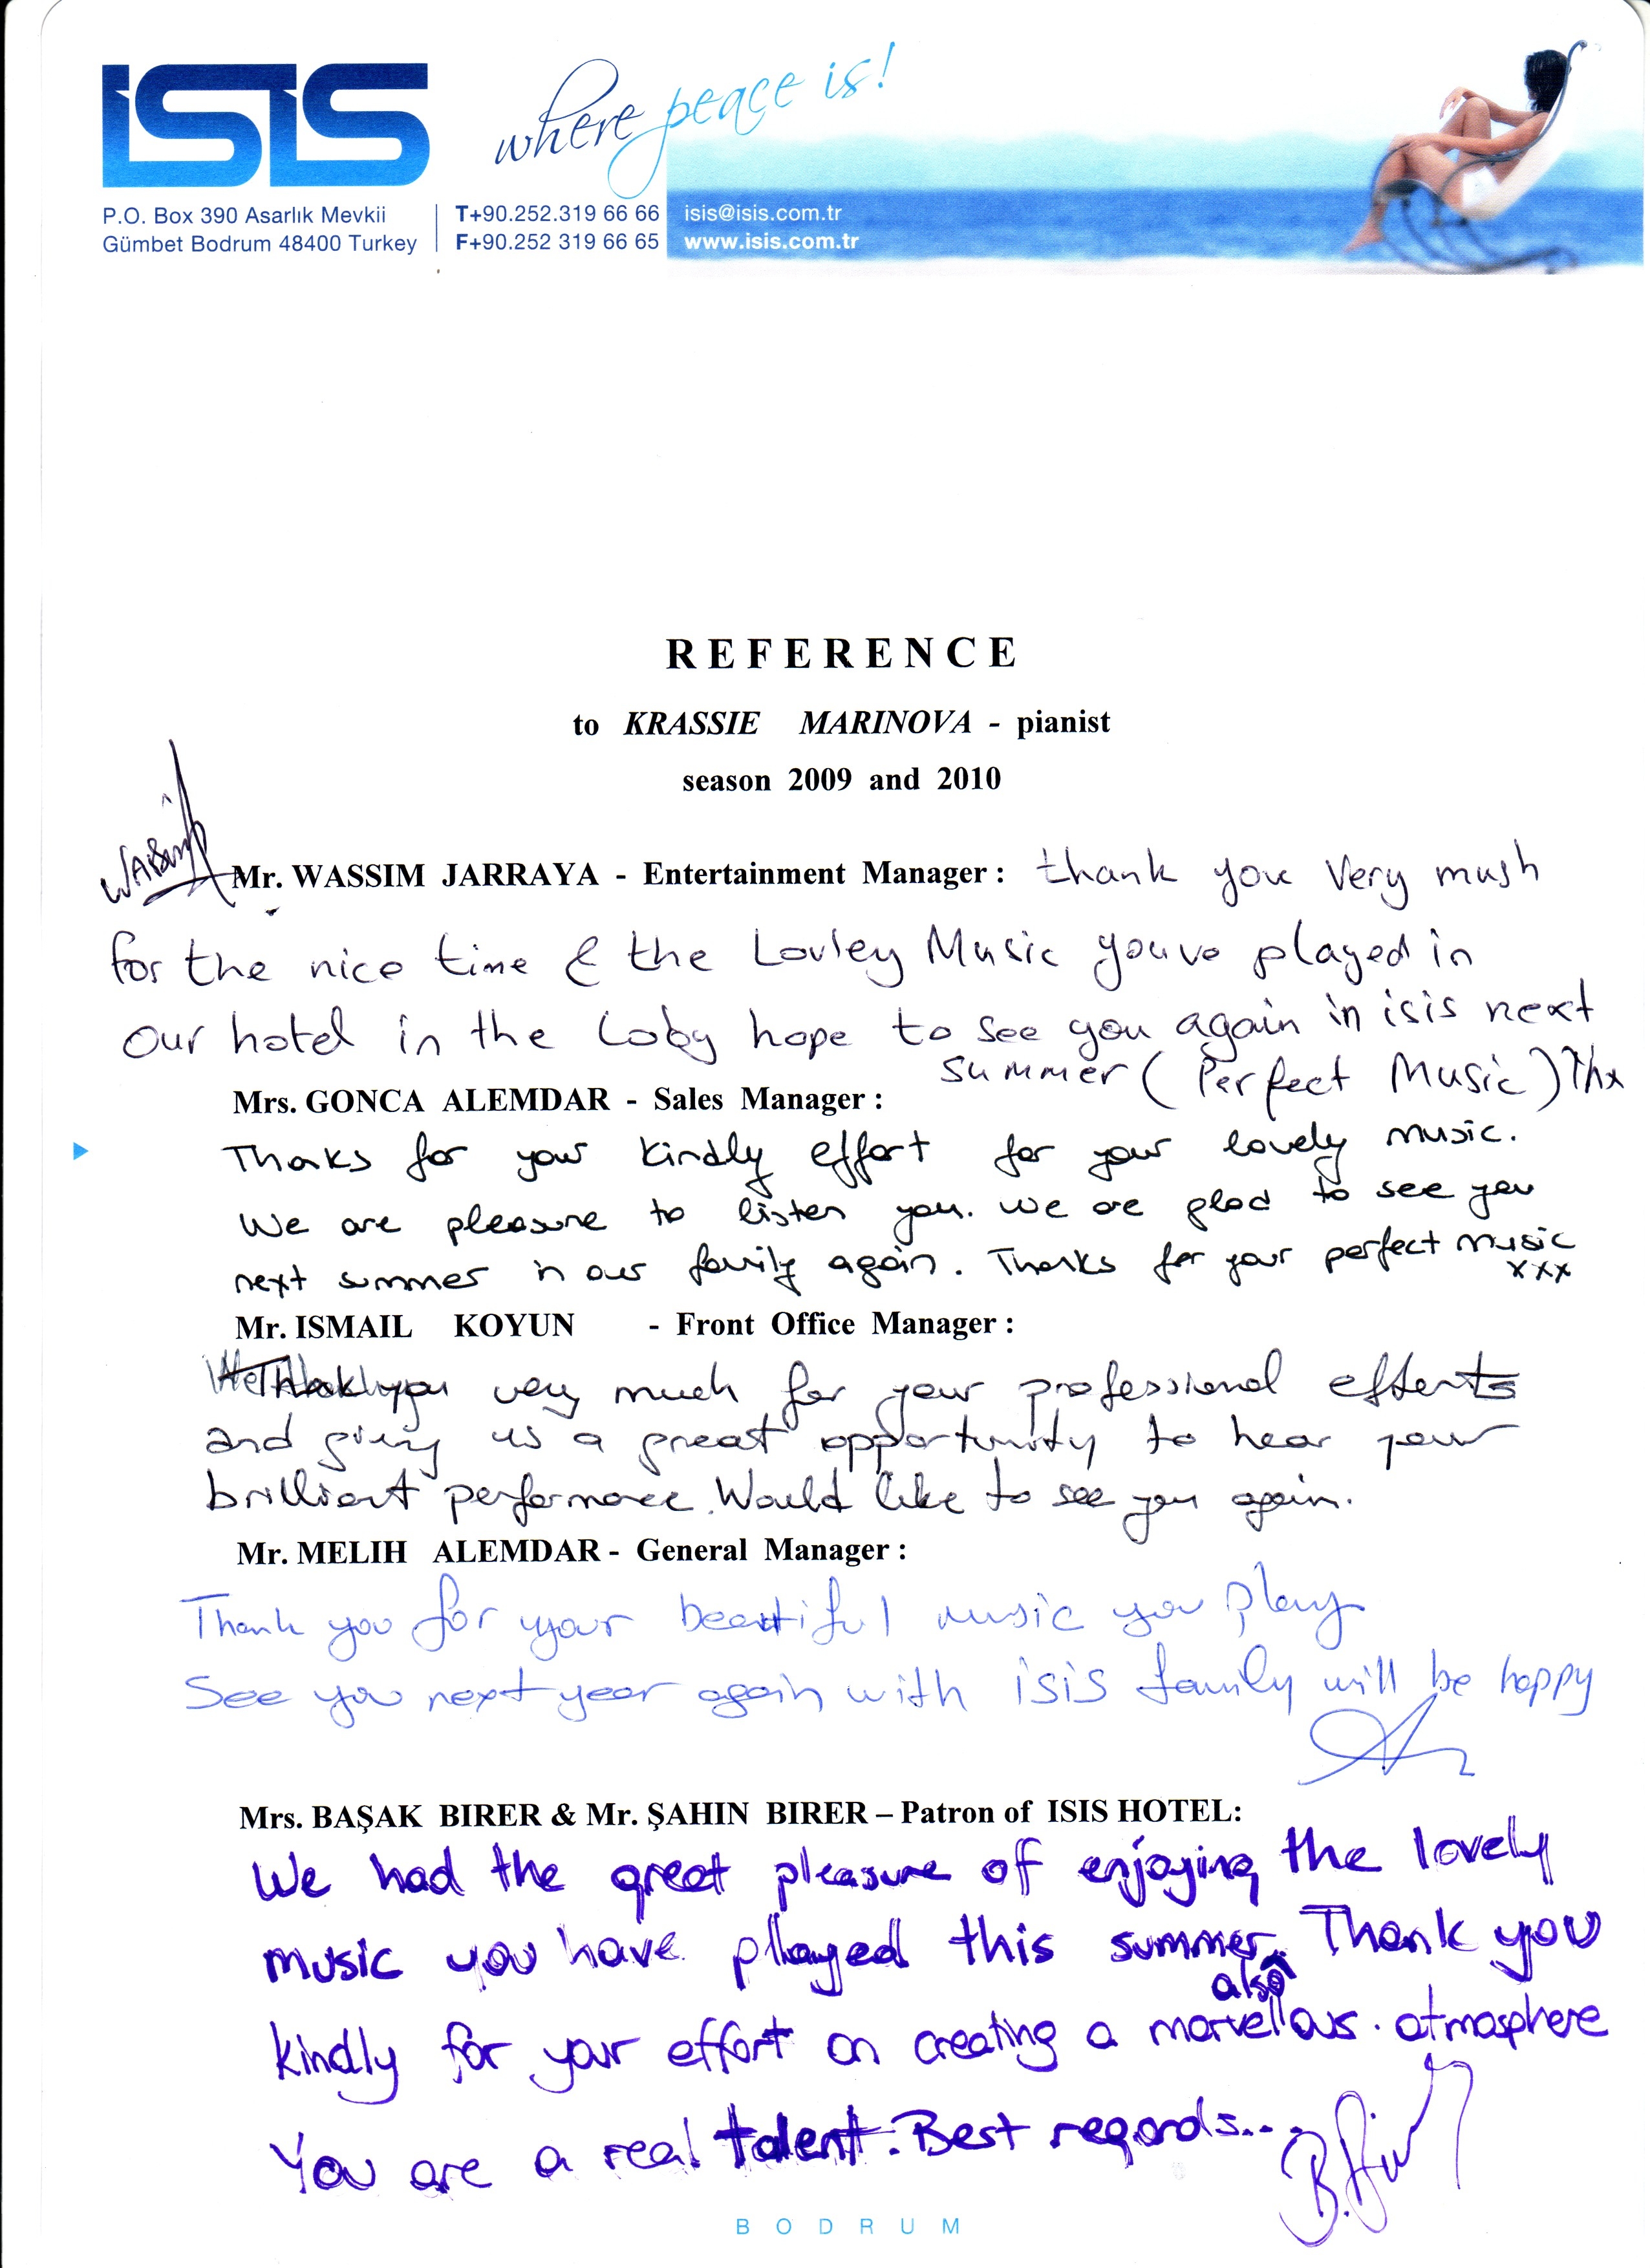 ISIS
where peace is!
P.O. Box 390 Asarlık Mevkii
Gümbet Bodrum 48400 Turkey
T+90.252.319 66 66
F+90.252 319 66 65
isis@isis.com.tr
www.isis.com.tr
REFERENCE
to KRASSIE MARINOVA - pianist
season 2009 and 2010
WASSIM
Mr. WASSIM JARRAYA - Entertainment Manager : thank you Very mush
for the nice time & the Lovley Music youve played in
our hotel in the Loby hope to see you again in isis next
summer (Perfect Music) Thx
Mrs. GONCA ALEMDAR - Sales Manager :
Thanks for your kindly effort for your lovely music.
We are pleasure to listen you. we are glad to see you
next summer in our family again. Thanks for your perfect music
xxx
Mr. ISMAIL KOYUN - Front Office Manager :
Thank you very much for your professional efforts
and giving us a great opportunity to hear your
brilliant performance. Would like to see you again.
Mr. MELIH ALEMDAR - General Manager :
Thank you for your beautiful music you play
See you next year again with isis family will be happy
Mrs. BAŞAK BIRER & Mr. ŞAHIN BIRER – Patron of ISIS HOTEL:
We had the great pleasure of enjoying the lovely
music you have played this summer. Thank you
also
kindly for your effort on creating a marvellous atmosphere
You are a real talent. Best regards...
BODRUM